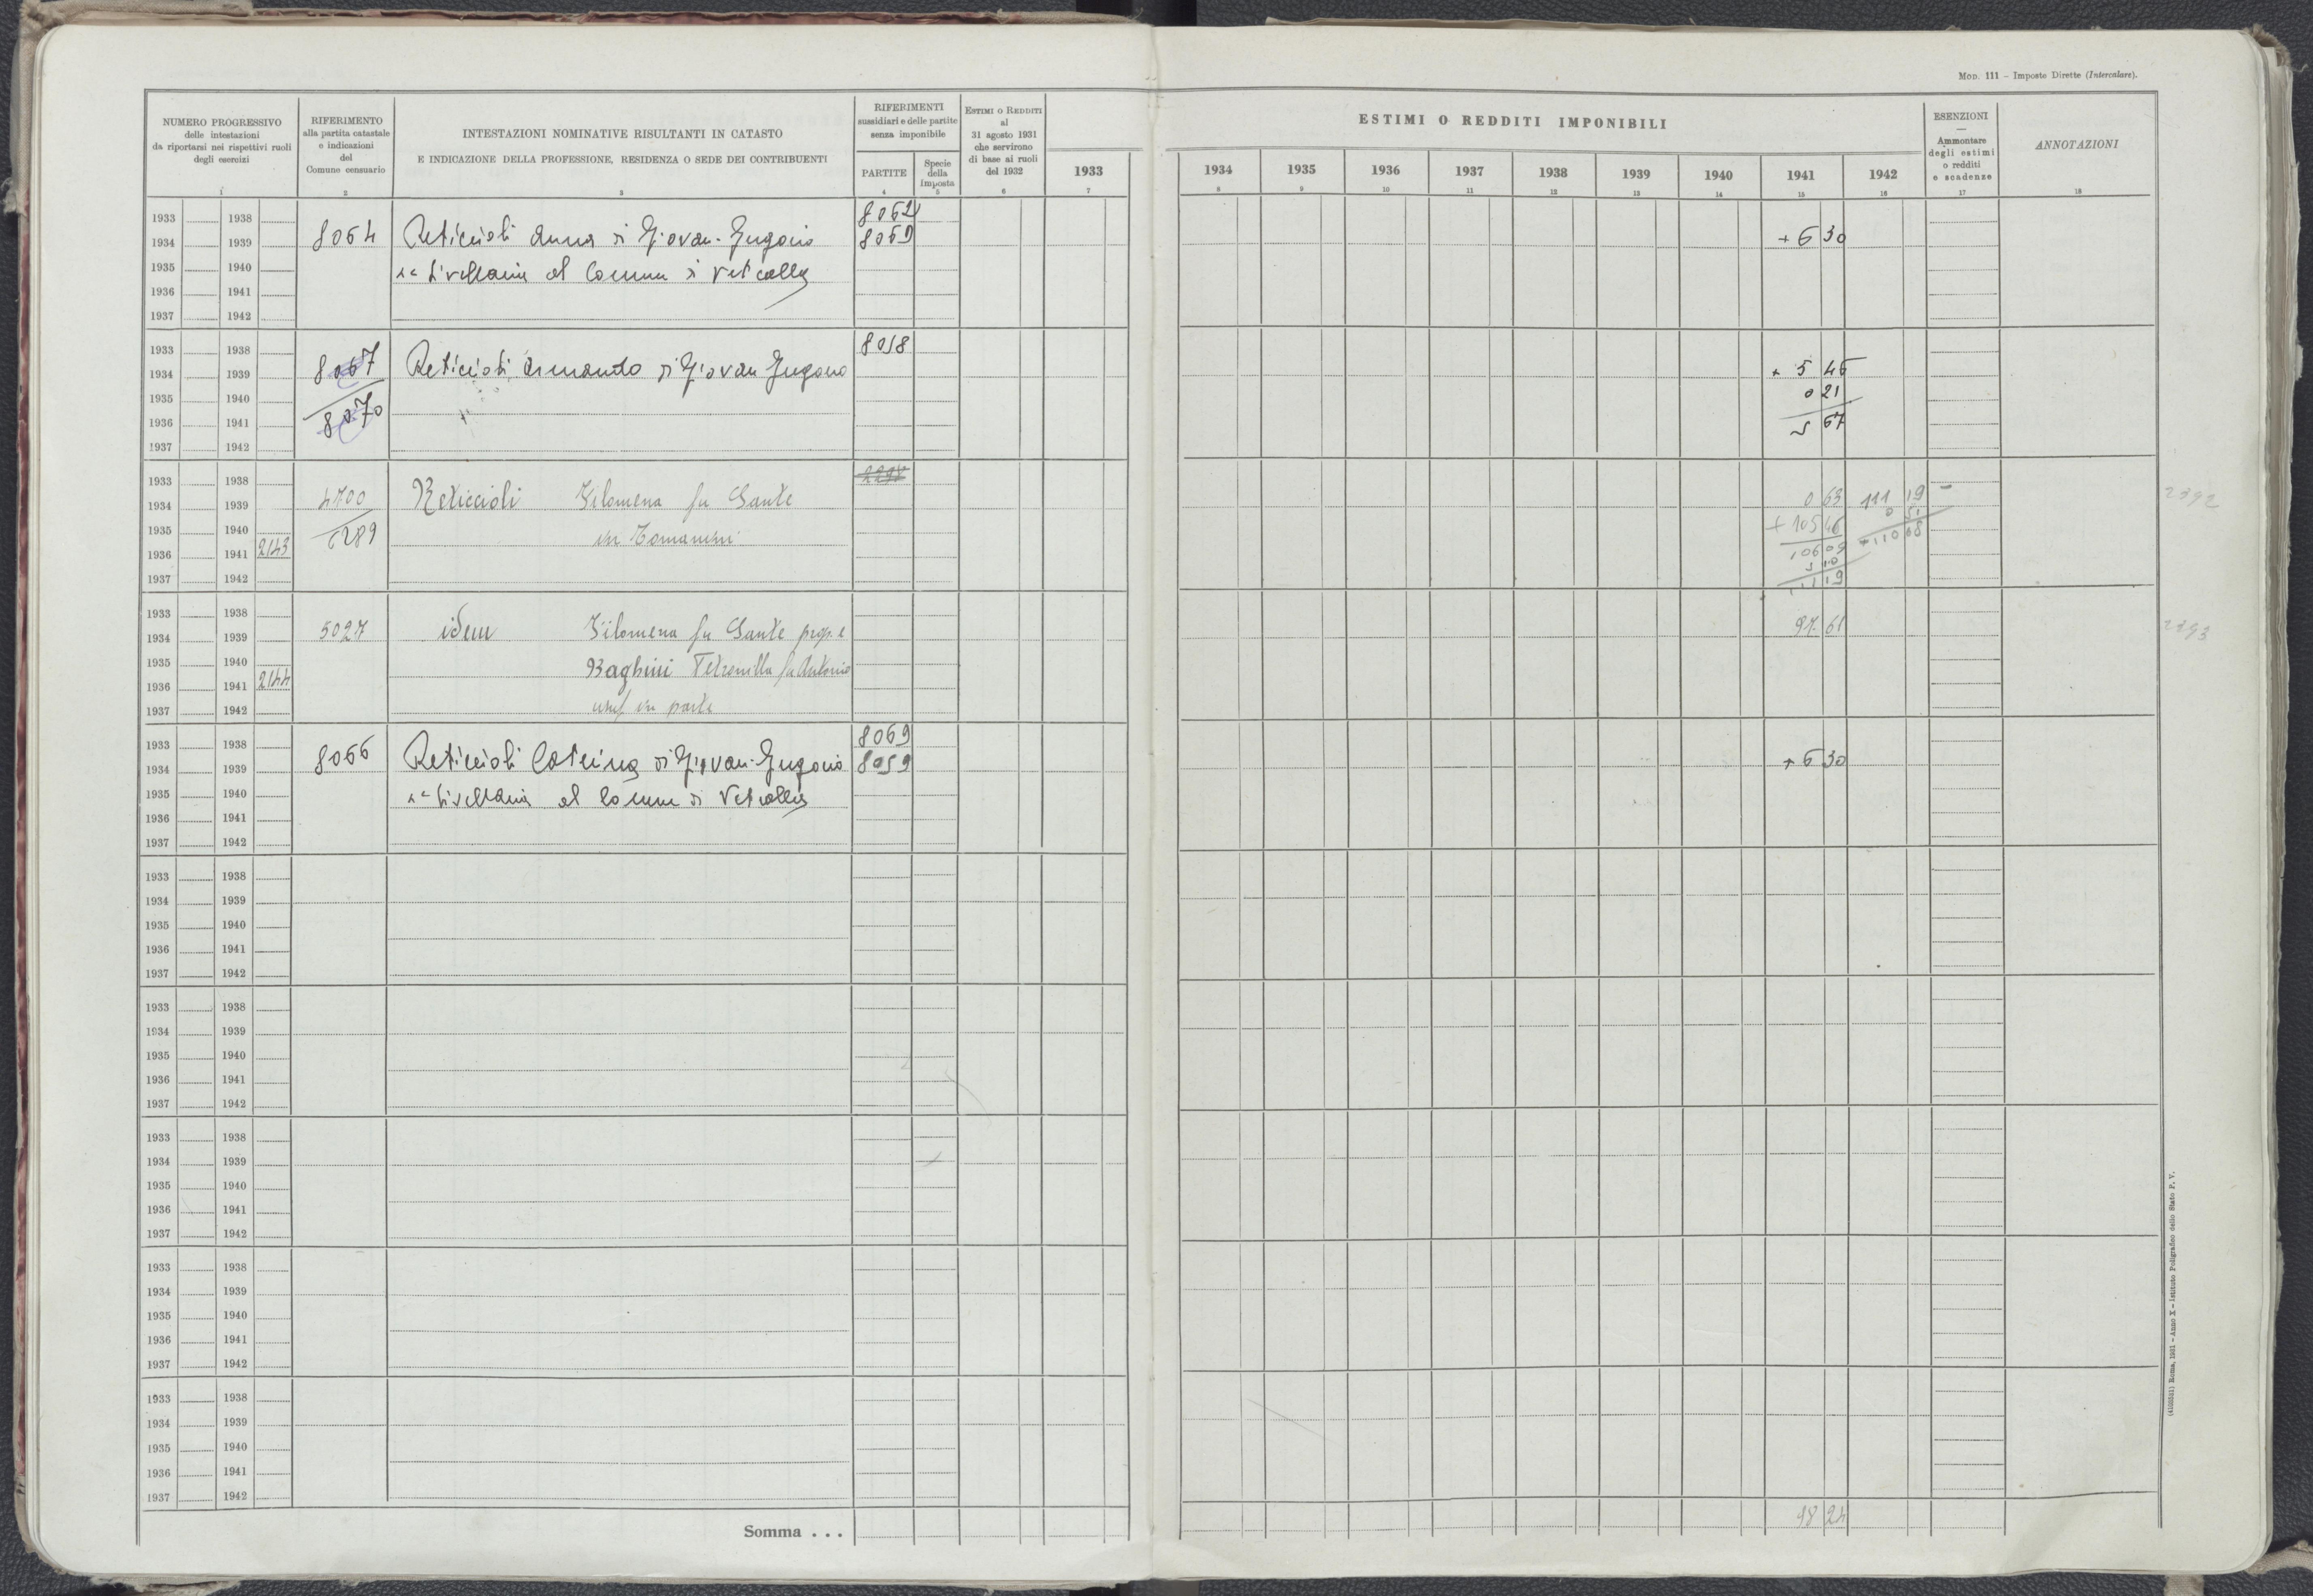 Mod. 111 – Imposte Dirette (Intercalare).
NUMERO PROGRESSIVO
delle intestazioni
da riportarsi nei rispettivi ruoli
degli esercizi
1
RIFERIMENTO
alla partita catastale
e indicazioni
del
Comune censuario
2
INTESTAZIONI NOMINATIVE RISULTANTI IN CATASTO
E INDICAZIONE DELLA PROFESSIONE, RESIDENZA O SEDE DEI CONTRIBUENTI
3
RIFERIMENTI
sussidiari e delle partite
senza imponibile
PARTITE
4
Specie
della
Imposta
5
Estimi o Redditi
al
31 agosto 1931
che servirono
di base ai ruoli
del 1932
6
ESTIMI O REDDITI IMPONIBILI
1933 1934 1935 1936 1937 1938 1939 1940 1941 1942
7 8 9 10 11 12 13 14 15 16
ESENZIONI
—
Ammontare
degli estimi
o redditi
e scadenze
17
ANNOTAZIONI
18
8062
1933 1938
1934 1939 8064 Reticcioli Anna di Giovan-Gregorio 8069 + 6 30
1935 1940 livellaria al Comune di Vetralla
1936 1941
1937 1942
1933 1938 8058
1934 1939 8067 Reticcioli Armando di Giovan Gregorio + 5 46
1935 1940 0 21
1936 1941 8070 5 67
1937 1942
1933 1938
1934 1939 4700 Reticcioli Filomena fu Sante 0 63 111 19 2392
1935 1940 6289 in + 105 46 0 51
1936 1941 2143 106 09 110 68
1937 1942 5 10
111 19
1933 1938
1934 1939 5027 idem Filomena fu Sante prop. e 97 61 2393
1935 1940 Baghini Petronilla fu Antonio
1936 1941 2144
1937 1942 usuf in parte
1933 1938 8069
1934 1939 8066 Reticcioli Caterina di Giovan-Gregorio 8059 + 6 30
1935 1940 livellaria al Comune di Vetralla
1936 1941
1937 1942
1933 1938
1934 1939
1935 1940
1936 1941
1937 1942
1933 1938
1934 1939
1935 1940
1936 1941
1937 1942
1933 1938
1934 1939
1935 1940
1936 1941
1937 1942
1933 1938
1934 1939
1935 1940
1936 1941
1937 1942
1933 1938
1934 1939
1935 1940
1936 1941
1937 1942
Somma . . . 98 24
Roma, 1931 – Anno X – Istituto Poligrafico dello Stato P. V.